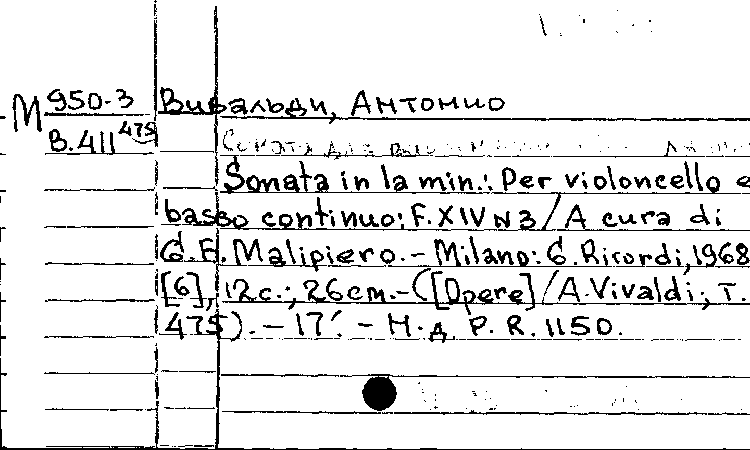 М 950-3 Вивальди, Антонио
В.411 475
Sonata in la min.: Per violoncello e
basso continuo; F.XIV N3 / A cura di
G.F. Malipiero. - Milano: G. Ricordi, 1968
[6], 12c.; 26cm. - ([Opere] / A. Vivaldi; T.
475). - 17'. - Н.д. P.R. 1150.